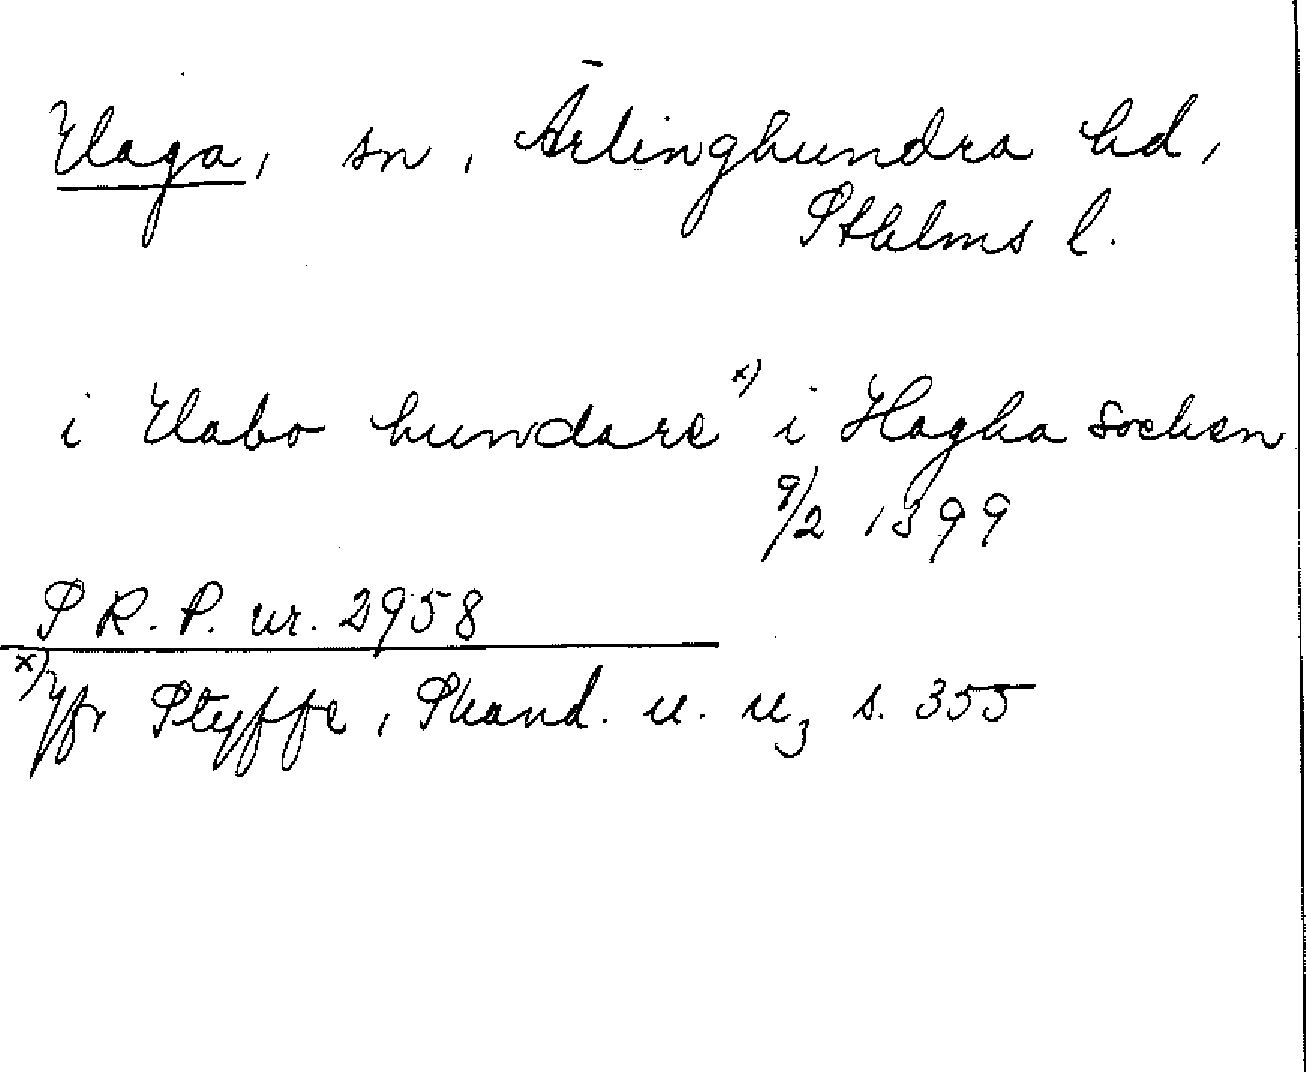 Haga, sn, Ärlinghundra hd,
Sthlms l.
i Habo hundare x) i Hagha socken
9/2 1399
S R. P. nr. 2958
x) Jfr Styffe, Skand. u. u, s. 355